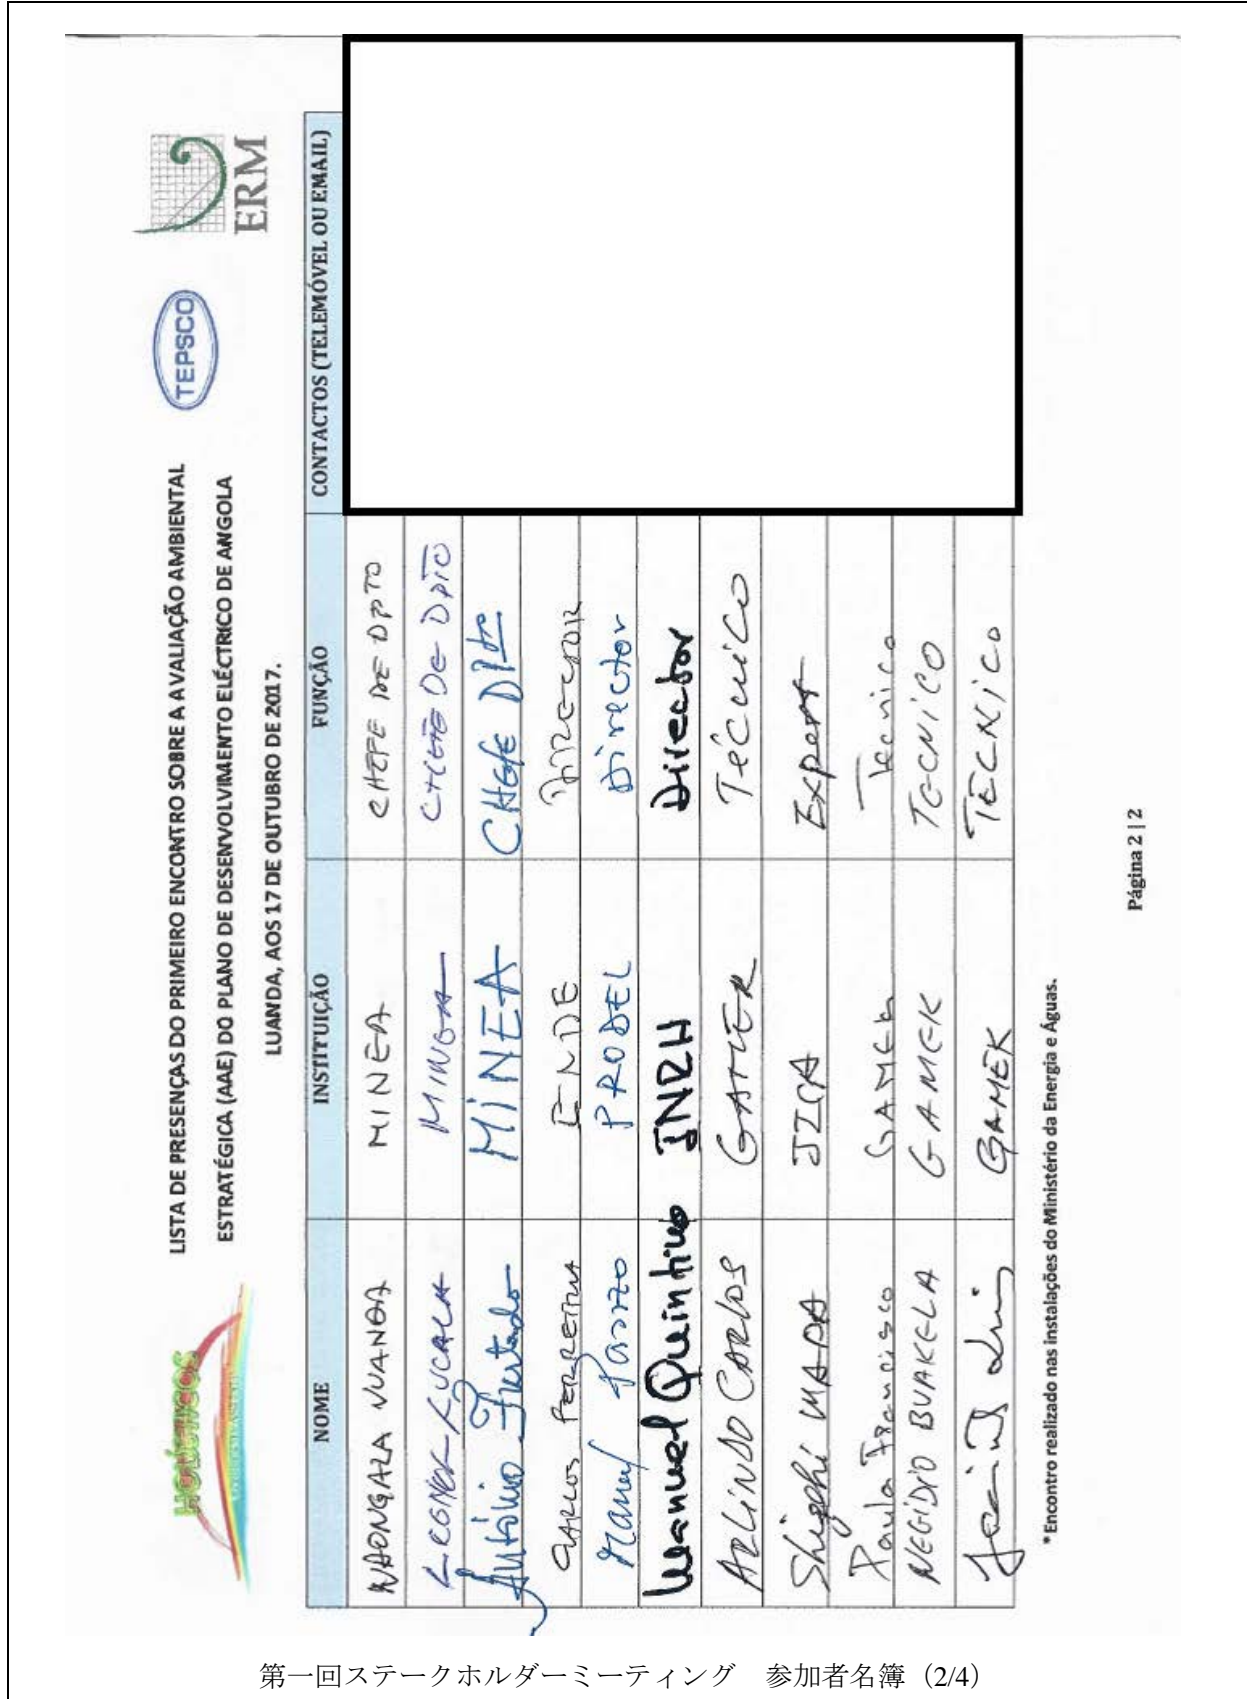 HOLÍSTICOS
TEPSCO
ERM
LISTA DE PRESENÇAS DO PRIMEIRO ENCONTRO SOBRE A AVALIAÇÃO AMBIENTAL
ESTRATÉGICA (AAE) DO PLANO DE DESENVOLVIMENTO ELÉCTRICO DE ANGOLA
LUANDA, AOS 17 DE OUTUBRO DE 2017.
NOME INSTITUIÇÃO FUNÇÃO CONTACTOS (TELEMÓVEL OU EMAIL)
VUANDA MINEA CHEFE DE DPTO
LUCALA MINEA CHEFE DE DPTO
António Furtado MINEA CHEFE
CARLOS FERREIRA ENDE DIRECTOR
PRODEL Director
Manuel Quintino INRH Director
ARLINDO CARLOS GAMEK TÉCNICO
JICA Expert
Paulo Francisco GAMEK Tecnico
NEGIDIO BUAKELA GAMEK TECNICO
GAMEK TECNICO
*Encontro realizado nas instalações do Ministério da Energia e Águas.
Página 2 | 2
第一回ステークホルダーミーティング 参加者名簿（2/4）